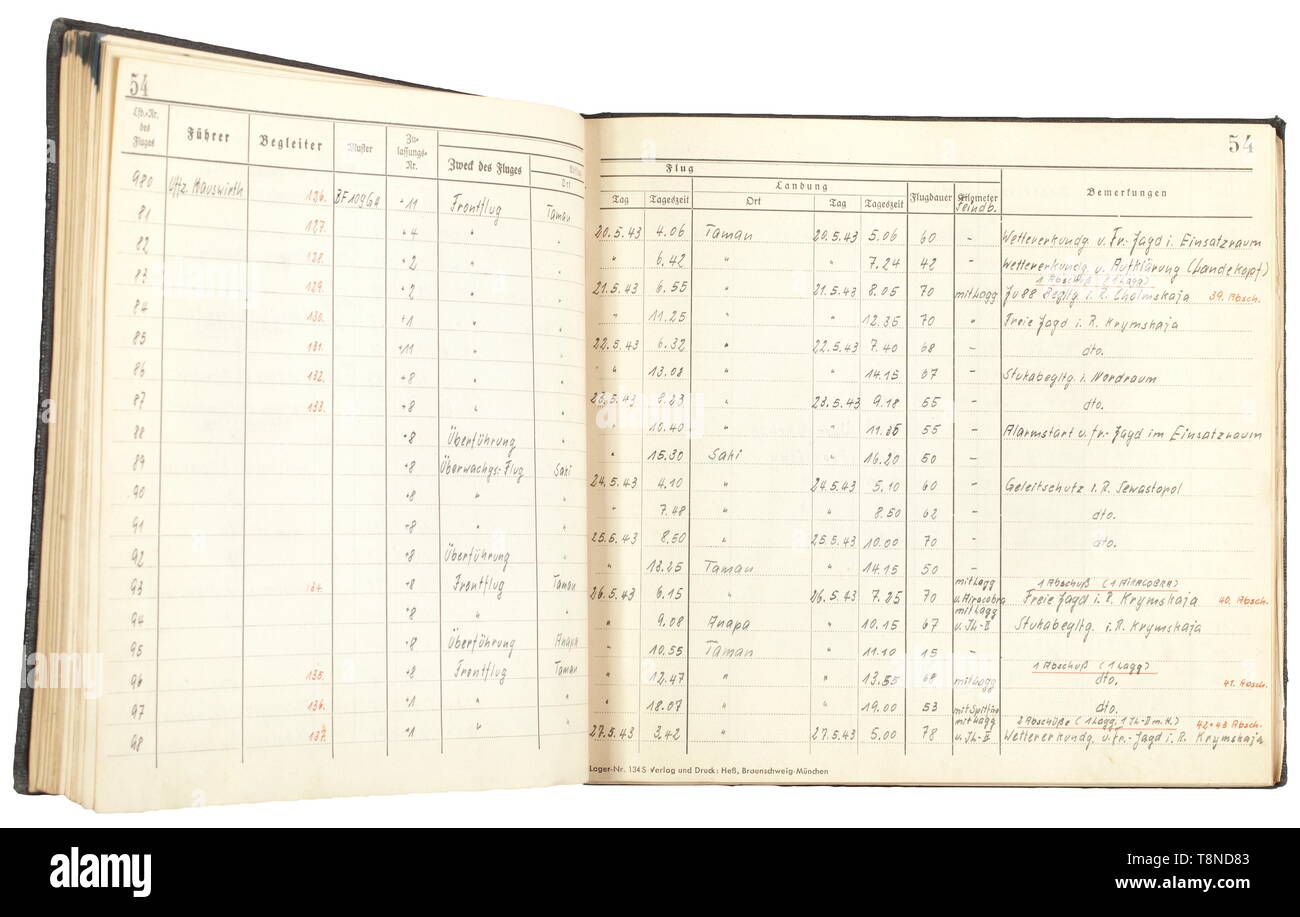 54
Lfd.-Nr. des Fluges Führer Begleiter Muster Zulassungs-Nr. Zweck des Fluges Ort
980 Uffz. Hauswirth 126. BF109G4 +11 Frontflug Taman
81 127. +4 " "
82 128. +2 " "
83 129. +2 " "
84 130. +1 " "
85 131. +11 " "
86 132. +8 " "
87 133. +8 " "
88 +8 Überführung "
89 +8 Überwachgs-Flug Saki
90 +8 " "
91 +8 " "
92 +8 Überführung "
93 134. +8 Frontflug Taman
94 +8 " "
95 +8 Überführung Anapa
96 135. +8 Frontflug Taman
97 136. +1 " "
98 137. +1 " "
54
Flug
Landung
Tag Tageszeit Ort Tag Tageszeit Flugdauer Kilometer Feindb. Bemerkungen
20.5.43 4.06 Taman 20.5.43 5.06 60 - Wettererkundg. u. Fr.-Jagd i. Einsatzraum
" 6.42 " " 7.24 42 - Wettererkundg. u. Aufklärung (Landekopf)
1 Abschuß (1 Lagg)
21.5.43 6.55 " 21.5.43 8.05 70 mit Lagg Ju 88 Begltg i. R. Cholmskaja 39. Absch.
" 11.25 " " 12.35 70 " Freie Jagd i. R. Krymskaja
22.5.43 6.32 " 22.5.43 7.40 68 - dto.
" 13.08 " " 14.15 67 - Stukabegltg. i. Nordraum
23.5.43 8.23 " 23.5.43 9.18 55 - dto.
" 10.40 " " 11.35 55 - Alarmstart u. fr.-Jagd im Einsatzraum
" 15.30 Saki " 16.20 50 -
24.5.43 4.10 " 24.5.43 5.10 60 - Geleitschutz i. R. Sewastopol
" 7.48 " " 8.50 62 - dto.
25.5.43 8.50 " 25.5.43 10.00 70 - dto.
" 13.25 Taman " 14.15 50 -
mit Lagg 1 Abschuß (1 AIRACOBRA)
26.5.43 6.15 " 26.5.43 7.25 70 u. Airacobra Freie Jagd i. R. Krymskaja 40. Absch.
mit Lagg
" 9.08 Anapa " 10.15 67 u. JL-II Stukabegltg. i. R. Krymskaja
" 10.55 Taman " 11.10 15 -
1 Abschuß (1 Lagg)
" 12.47 " " 13.55 68 mit Lagg dto. 41. Absch.
" 18.07 " " 19.00 53 mit Spitfire dto.
mit Lagg 2 Abschüße (1 Lagg, 1 JL-II m. H.) 42+43 Absch.
27.5.43 3.42 " 27.5.43 5.00 78 u. JL-II Wettererkundg. u. Fr.-Jagd i. R. Krymskaja
Lager-Nr. 134 S Verlag und Druck: Heß, Braunschweig-München
alamy
alamy
Image ID: T8ND83
www.alamy.com